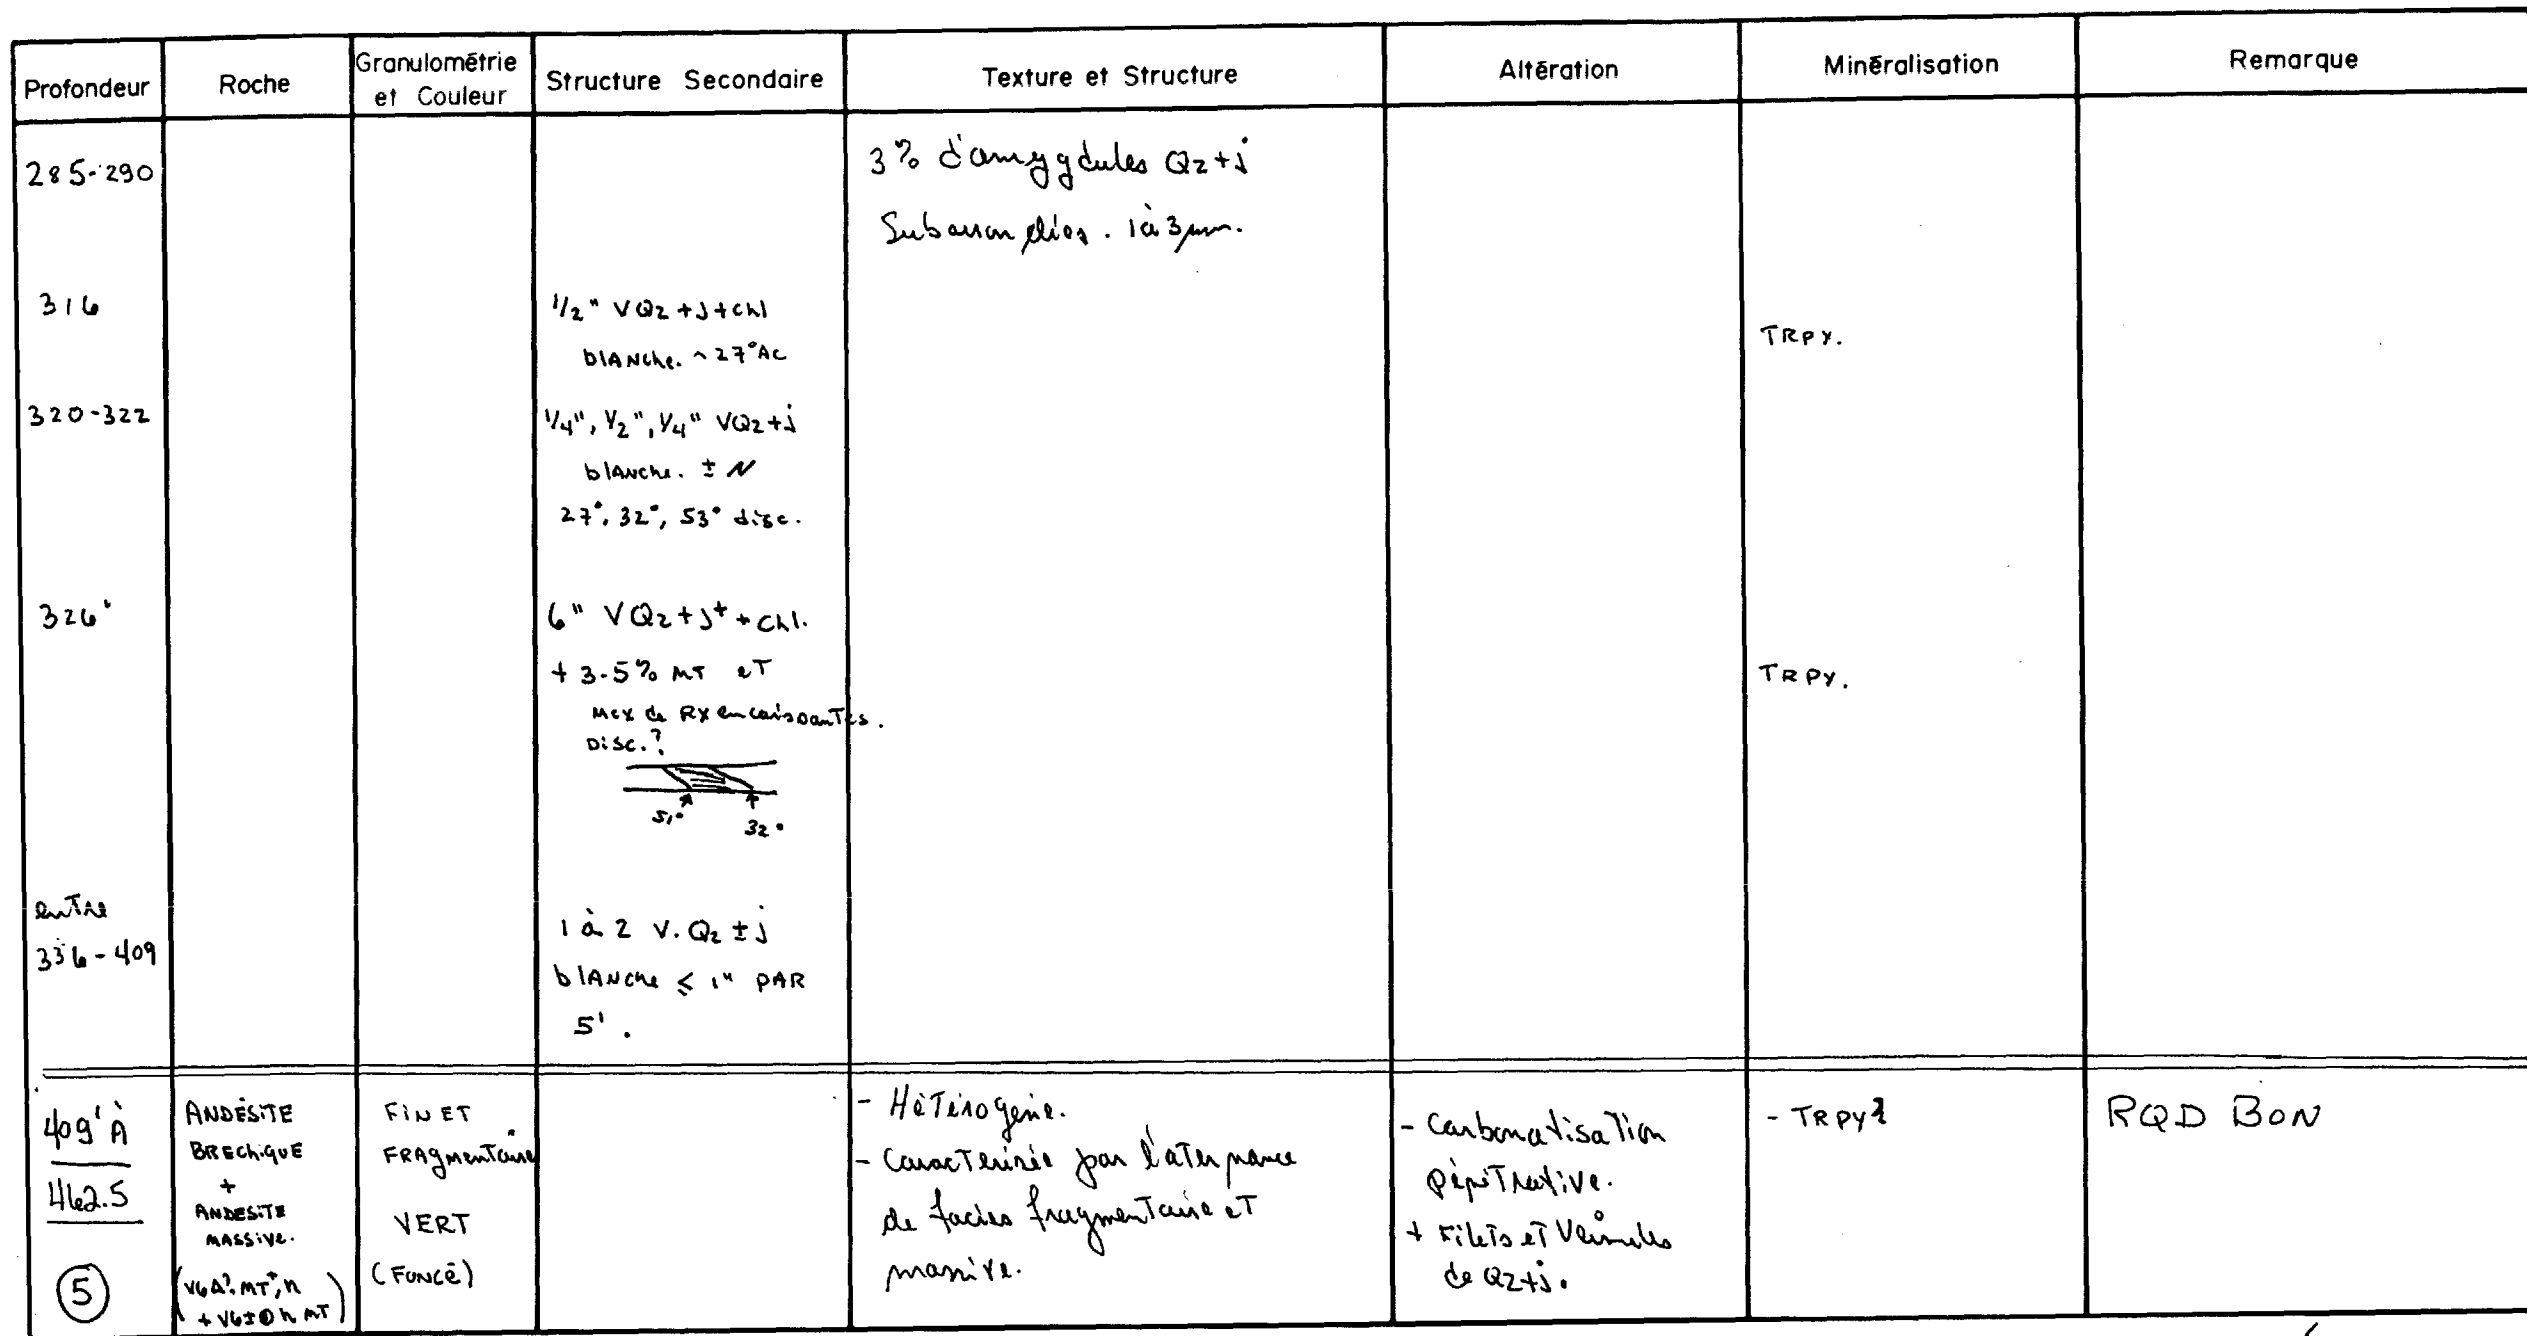 Profondeur
Roche
Granulométrie
et Couleur
Structure Secondaire
Texture et Structure
Altération
Minéralisation
Remarque
285-290
3% d'amygdules Qz+j
Subarrondies. 1à3mm.
316
1/2" VQz+j+chl
blANche. ~27°AC
TRPY.
320-322
1/4", 1/2", 1/4" VQz+j
blANche. ± N
27°, 32°, 53° disc.
326'
6" VQz+j+ +chl.
+ 3-5% MT eT
Mcx de RX encaissanTes.
Disc.?
TRPY.
51° 32°
enTre
336-409
1 à 2 V. Qz ±j
blANche ≤ 1" PAR
5'.
409' À
462.5
5
ANDÉSITE
BRECHiQUE
+
ANDESiTE
MASSiVe.
(V6A?. MT+, n
+ V6± n MT)
FiN ET
FRAgmenTaire
VERT
(FONCÉ)
- HéTérogène.
- CaracTerisée par l'aternance
de facies fragmenTaire eT
massive.
- CarbonatisaTion
pépiTrative.
+ FileTs eT Veinules
de Qz+j.
- TRPY
RQD BON